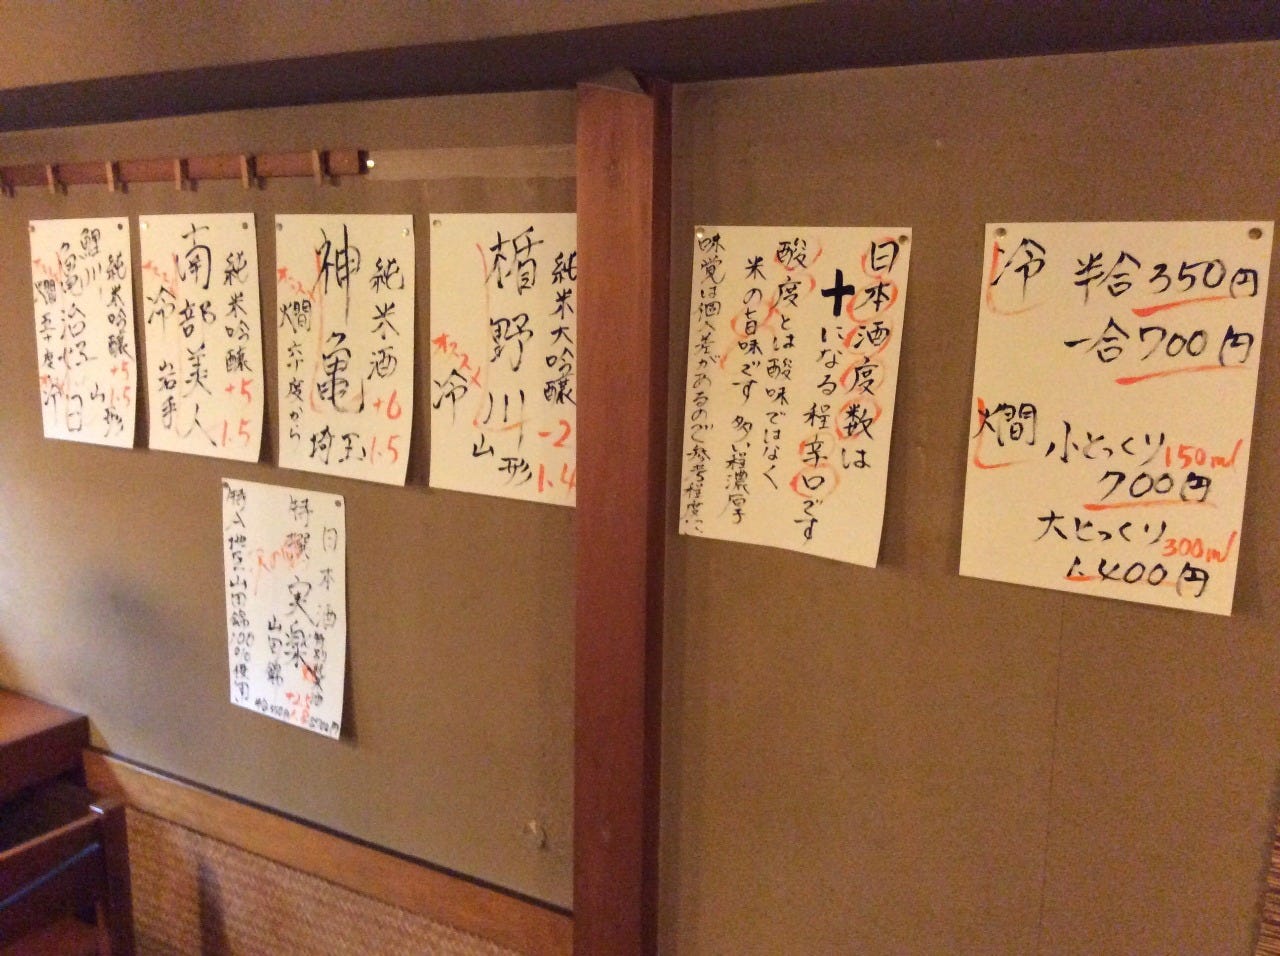 冷
半合350円
一合700円
燗
小とっくり150ml
700円
大とっくり300ml
1.400円
日本酒度数は
+になる程辛口です
酸度とは酸味ではなく
米の旨味です 多い程濃厚
味覚は個人差があるので参考程度に
純米大吟醸 -2 1.4
楯野川 山形
オススメ 冷
純米酒 +6 1.5
神亀 埼玉
オススメ 燗 六十度から
純米吟醸 +5 1.5
南部美人 岩手
オススメ 冷
純米吟醸 +5 1.5
鯉川 山形
亀治好日
オススメ 燗 五十度 冷
日本酒 特別
特撰 実楽
山田錦 +2.5
特A地区山田錦100%使用